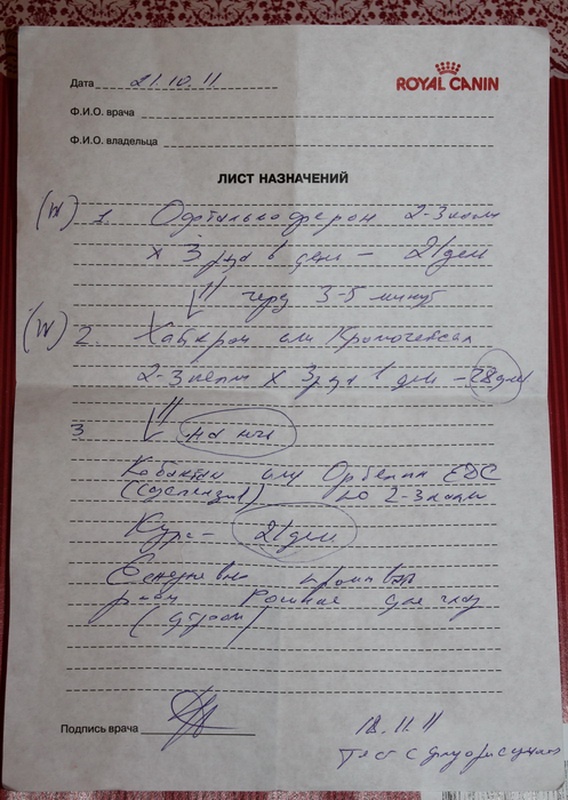 Дата 21.10.11
ROYAL CANIN
Ф.И.О. врача
Ф.И.О. владельца
ЛИСТ НАЗНАЧЕНИЙ
1. Офтальмоферон 2-3 капли
х 3 раза в день - 21 день
через 3-5 минут
2. Хайкром или Кромогексал
2-3 капли х 3 раза в день - 28 дней
3
на ночь
Кобактан или Орбенин EDC
(суспензия) по 2-3 капли
Курс - 21 день
Ежедневно промывать
глаз
(утром)
Подпись врача
18.11.11
Тест с флуоресцеином